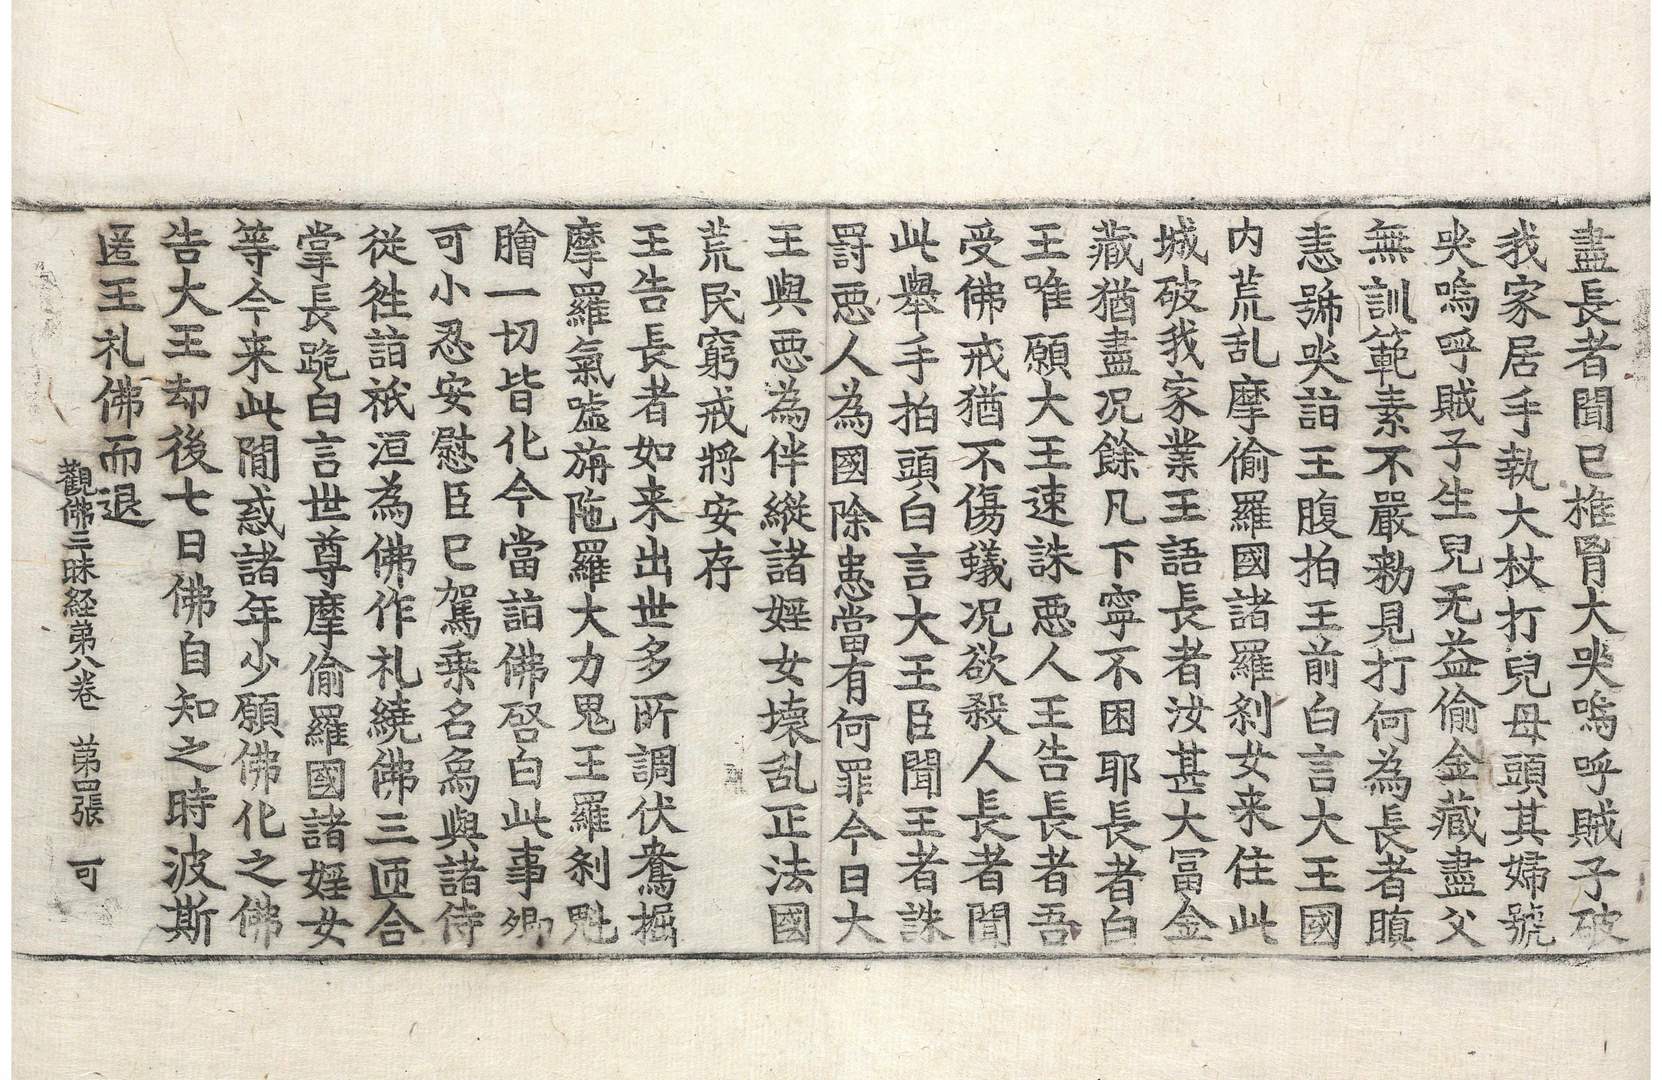 盡長者聞已搥胷大哭嗚呼賊子破
我家居手執大杖打兒母頭其婦號
哭嗚呼賊子生兒无益偷金藏盡父
無訓範素不嚴勑見打何為長者瞋
恚號哭詣王腹拍王前白言大王國
内荒乱摩偷羅國諸羅刹女来住此
城破我家業王語長者汝甚大冨金
藏猶盡况餘凡下寧不困耶長者白
王唯願大王速誅惡人王告長者吾
受佛戒猶不傷蟻况欲殺人長者聞
此舉手拍頭白言大王臣聞王者誅
罸惡人為國除患當有何罪今日大
王與惡為伴縱諸婬女壞乱正法國
荒民窮戒將安存
王告長者如来出世多所調伏鴦掘
摩羅氣嘘旃陁羅大力鬼王羅刹魁
膾一切皆化今當詣佛啓白此事卿
可小忍安慰臣已駕乗名象與諸侍
従往詣祇洹為佛作礼繞佛三匝合
掌長跪白言世尊摩偷羅國諸婬女
等今来此間惑諸年少願佛化之佛
告大王却後七日佛自知之時波斯
匿王礼佛而退
觀佛三昧経苐八卷　苐四張　可